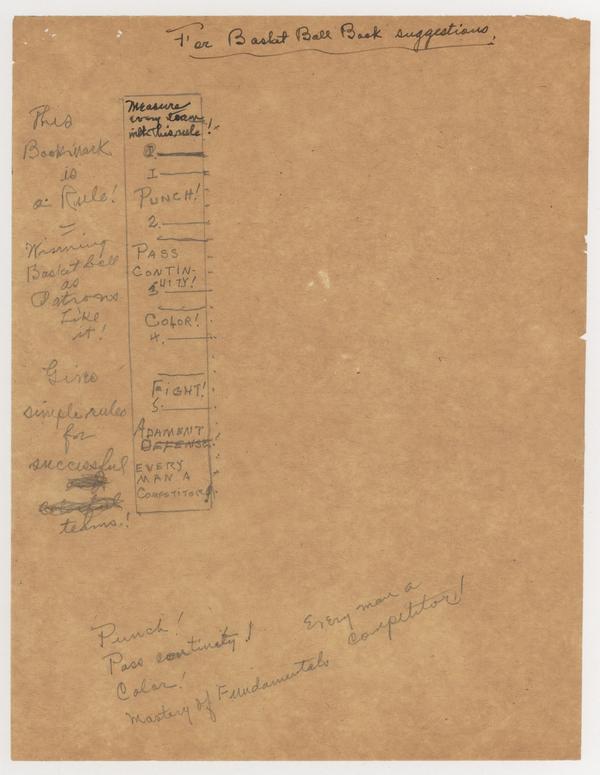 For Basket Ball Book suggestions.
This
Bookmark
is
a Rule!
=
Winning
Basket ball
as
Patrons
Like
it!
Gives
simple rules
for
successful
teams!
Measure
every team
with this rule!
1
PUNCH!
2.
PASS
CONTIN-
UITY!
3
COLOR!
4.
FIGHT!
5.
ADAMENT
OFFENSE
EVERY
MAN A
COMPETITOR!
Punch!
Pass continuity!
Color!
Mastery of Fundamentals
Every man a
competitor!